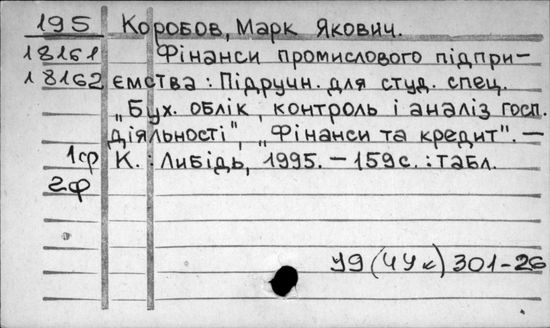 195 Коробов, Марк Якович.
18161 Фінанси промислового підпри-
18162 ємства : Підручн. для студ. спец.
„Бух. облік, контроль і аналіз госп.
діяльності", „Фінанси та кредит". —
1ср К. : Либідь, 1995. — 159с. : табл.
2ф
У9(4Ук)301-26